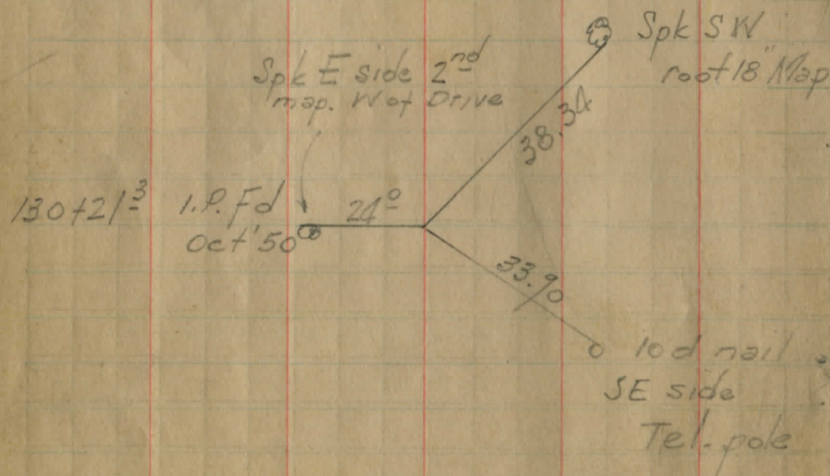 Spk SW
root 18" Map
Spk E side 2nd
map. W of Drive
38.34
130+21 3
I.P. Fd
Oct '50
24 0
33.90
10d nail
SE side
Tel. pole